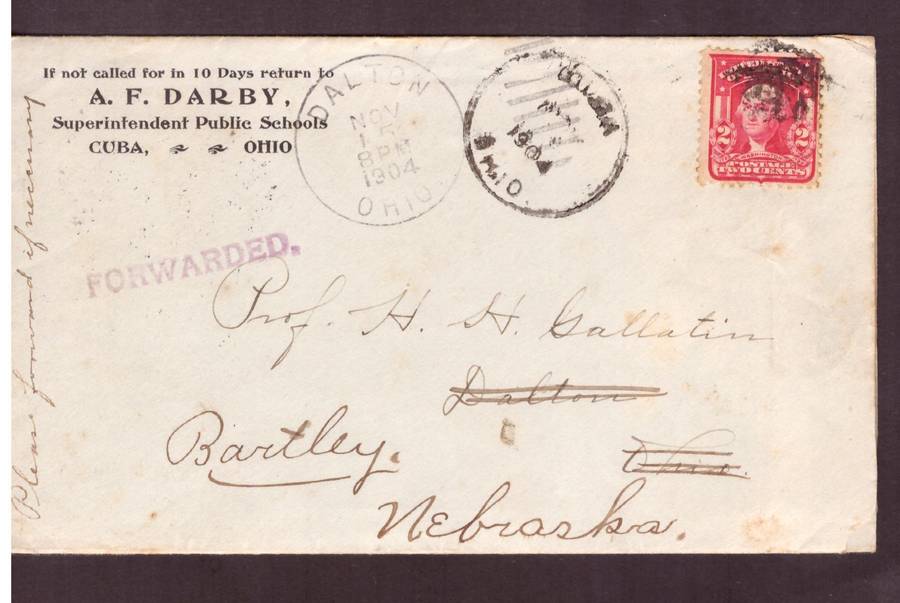 If not called for in 10 Days return to
A. F. DARBY,
Superintendent Public Schools
CUBA, OHIO
DALTON
NOV
8 PM
1904
OHIO
190
OHIO
2 2
WASHINGTON
POSTAGE
TWO CENTS
FORWARDED.
Please forward if necessary
Prof. H. H. Gallatin
Dalton
Ohio.
Bartley.
Nebraska.